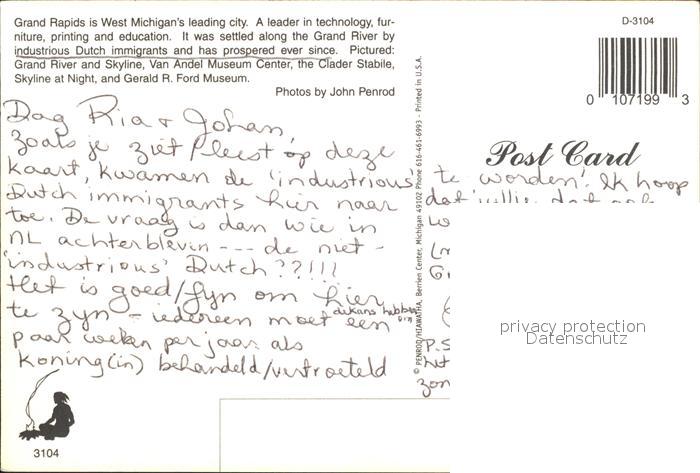 Grand Rapids is West Michigan's leading city. A leader in technology, fur-
niture, printing and education. It was settled along the Grand River by
industrious Dutch immigrants and has prospered ever since. Pictured:
Grand River and Skyline, Van Andel Museum Center, the Clader Stabile,
Skyline at Night, and Gerald R. Ford Museum.
Photos by John Penrod
Dag Ria + Johan,
Zoals je ziet/leest op deze
kaart, kwamen de 'industrious'
Dutch immigrants hier naar
toe. De vraag is dan wie in
NL achterblevin --- de niet -
'industrious' Dutch??!!!
Het is goed/fyn om hier
te zyn - iedereen moet de kans hebben om een
paar weken per jaar als
koning(in) behandeld/vertroeteld
3104
© PENROD/HIAWATHA, Berrien Center, Michigan 49102 Phone 616-461-6993 - Printed in U.S.A.
D-3104
0 107199 3
Post Card
te worden! Ik hoop
dat jullie
P.S.
het
zon
privacy protection
Datenschutz